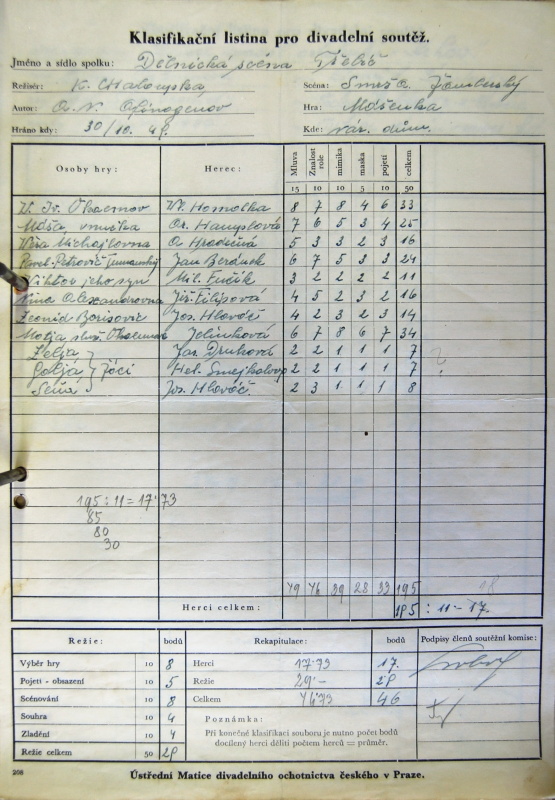 Klasifikační listina pro divadelní soutěž.
Jméno a sídlo spolku: Dělnická scéna Třebíč
Režisér: K. Chaloupka Scéna:
Autor: A. N. Afinogenov Hra: Mášenka
Hráno kdy: 30/10. 49. Kde: nár. dům.
Osoby hry: Herec: Mluva Znalost role mimika maska pojetí celkem
15 10 10 5 10 50
V. Iv. Okaemov Vl. Homolka 8 7 8 4 6 33
Máša, vnučka Ol. Hamplová 7 6 5 3 4 25
Věra Michajlovna A Hradečná 5 3 3 2 3 16
Pavel Petrovič Tumanský Jan Beránek 6 7 5 3 3 24
Viktor jeho syn Mil. Fučík 3 2 2 2 2 11
Nina Alexandrovna Jiř. Filipová 4 5 2 3 2 16
Leonid Borisovic Jos. Hlaváč 4 2 3 2 3 14
Motja služ. Okaemova Jelínková 6 7 8 6 7 34
Lelja Jar. Druhová 2 2 1 1 1 7
Galja } žáci Hel. Smejkalova 2 2 1 1 1 7 ?
Seňa Jos. Hlaváč. 2 3 1 1 1 8
195 : 11 = 17·73
85
80
30
49 46 39 28 33 195 18
Herci celkem: 195 : 11 – 17.
Režie: bodů Rekapitulace: bodů Podpisy členů soutěžní komise:
Výběr hry 10 8 Herci 17·73 17.
Pojetí - obsazení 10 5 Režie 29·– 29
Scénování 10 8 Celkem 46·73 46
Souhra 10 4 Poznámka:
Zladění 10 4 Při konečné klasifikaci souboru je nutno počet bodů
Režie celkem 50 29 docílený herci děliti počtem herců = průměr.
208 Ústřední Matice divadelního ochotnictva českého v Praze.